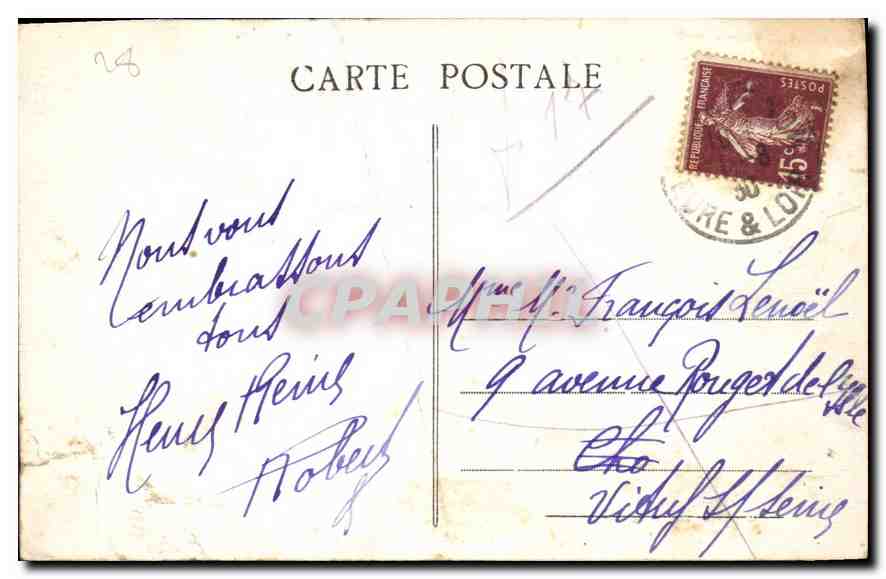 28
CARTE POSTALE
14
REPUBLIQUE FRANÇAISE
POSTES
15 c
8
30
INDRE & LOIRE
Nous vous
embrassons
tous
Henry Reine
Robert
CPAPHIL
Mme Mr François Lenoël
9 avenue Rouget de l'Isle
Cho
Vitry s/ Seine